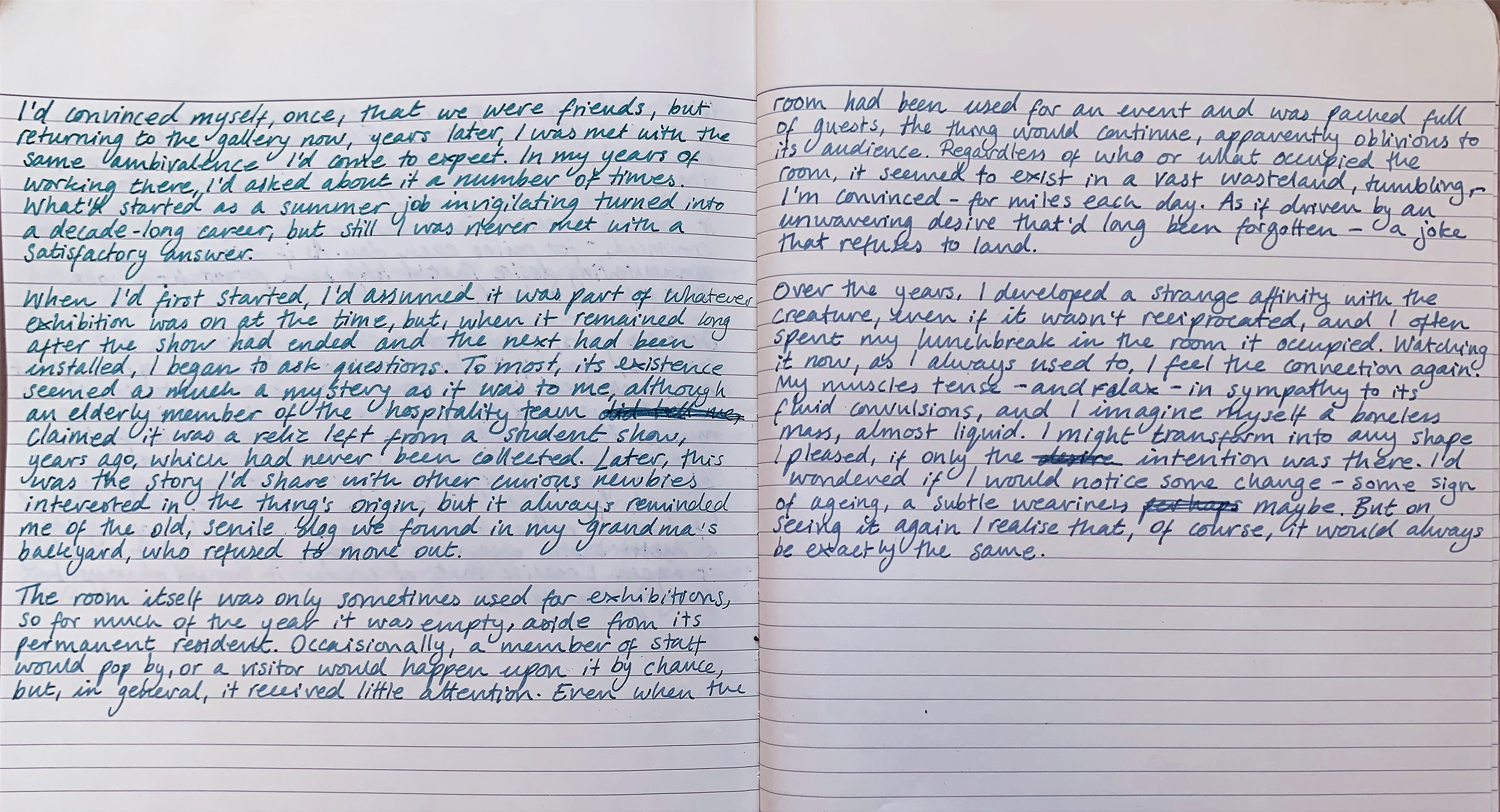 I'd convinced myself, once, that we were friends, but
returning to the gallery now, years later, I was met with the
same ambivalence I'd come to expect. In my years of
working there, I'd asked about it a number of times.
What started as a summer job invigilating turned into
a decade-long career, but still I was never met with a
satisfactory answer.
When I'd first started, I'd assumed it was part of whatever
exhibition was on at the time, but, when it remained long
after the show had ended and the next had been
installed, I began to ask questions. To most, its existence
seemed as much a mystery as it was to me, although
an elderly member of the hospitality team did tell me,
claimed it was a relic left from a student show,
years ago, which had never been collected. Later, this
was the story I'd share with other curious newbies
interested in the thing's origin, but it always reminded
me of the old, senile dog we found in my grandma's
backyard, who refused to move out.
The room itself was only sometimes used for exhibitions,
so for much of the year it was empty, aside from its
permanent resident. Occaisionally, a member of staff
would pop by, or a visitor would happen upon it by chance,
but, in general, it received little attention. Even when the
room had been used for an event and was packed full
of guests, the thing would continue, apparently oblivious to
its audience. Regardless of who or what occupied the
room, it seemed to exist in a vast wasteland, tumbling,-
I'm convinced - for miles each day. As if driven by an
unwavering desire that'd long been forgotten - a joke
that refuses to land.
Over the years, I developed a strange affinity with the
creature, even if it wasn't reciprocated, and I often
spent my lunchbreak in the room it occupied. Watching
it now, as I always used to, I feel the connection again.
My muscles tense - and relax - in sympathy to its
fluid convulsions, and I imagine myself a boneless
mass, almost liquid. I might transform into any shape
I pleased, if only the desire intention was there. I'd
wondered if I would notice some change - some sign
of ageing, a subtle weariness perhaps maybe. But on
seeing it again I realise that, of course, it would always
be exactly the same.